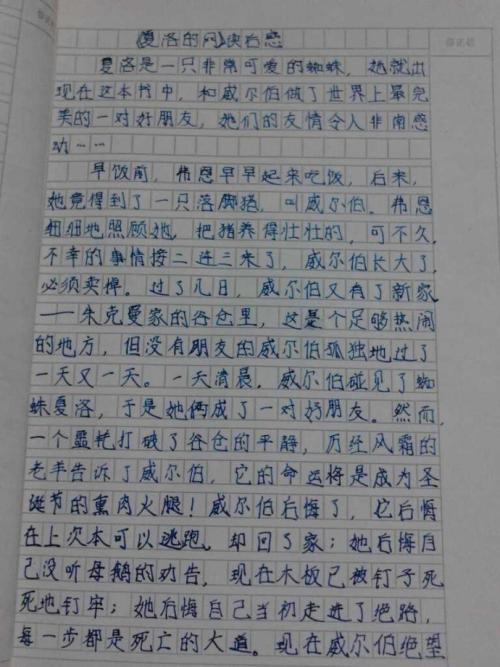 《夏洛的网》读后感
夏洛是一只非常可爱的蜘蛛，她就出
现在这本书中，和威尔伯做了世界上最完
美的一对好朋友，她们的友情令人非常感
动……
早饭前，弗恩早早起来吃饭，后来，
她竟得到了一只落脚猪，叫威尔伯。弗恩
细细地照顾她，把猪养得壮壮的，可不久，
不幸的事情接二连三来了，威尔伯长大了，
必须卖掉。过了几日，威尔伯又有了新家
——朱克曼家的谷仓里，这是个足够热闹
的地方，但没有朋友的威尔伯孤独地过了
一天又一天。一天清晨，威尔伯碰见了蜘
蛛夏洛，于是她俩成了一对好朋友。然而，
一个噩耗打破了谷仓的平静，历经风霜的
老羊告诉了威尔伯，它的命运将是成为圣
诞节的熏肉火腿！威尔伯后悔了，它后悔
在上次本可以逃跑。却回了家；她后悔自
己没听母鹅的劝告，现在木板已被钉子死
死地钉牢；她后悔自己当初走进了绝路，
每一步都是死亡的大道。现在威尔伯绝望